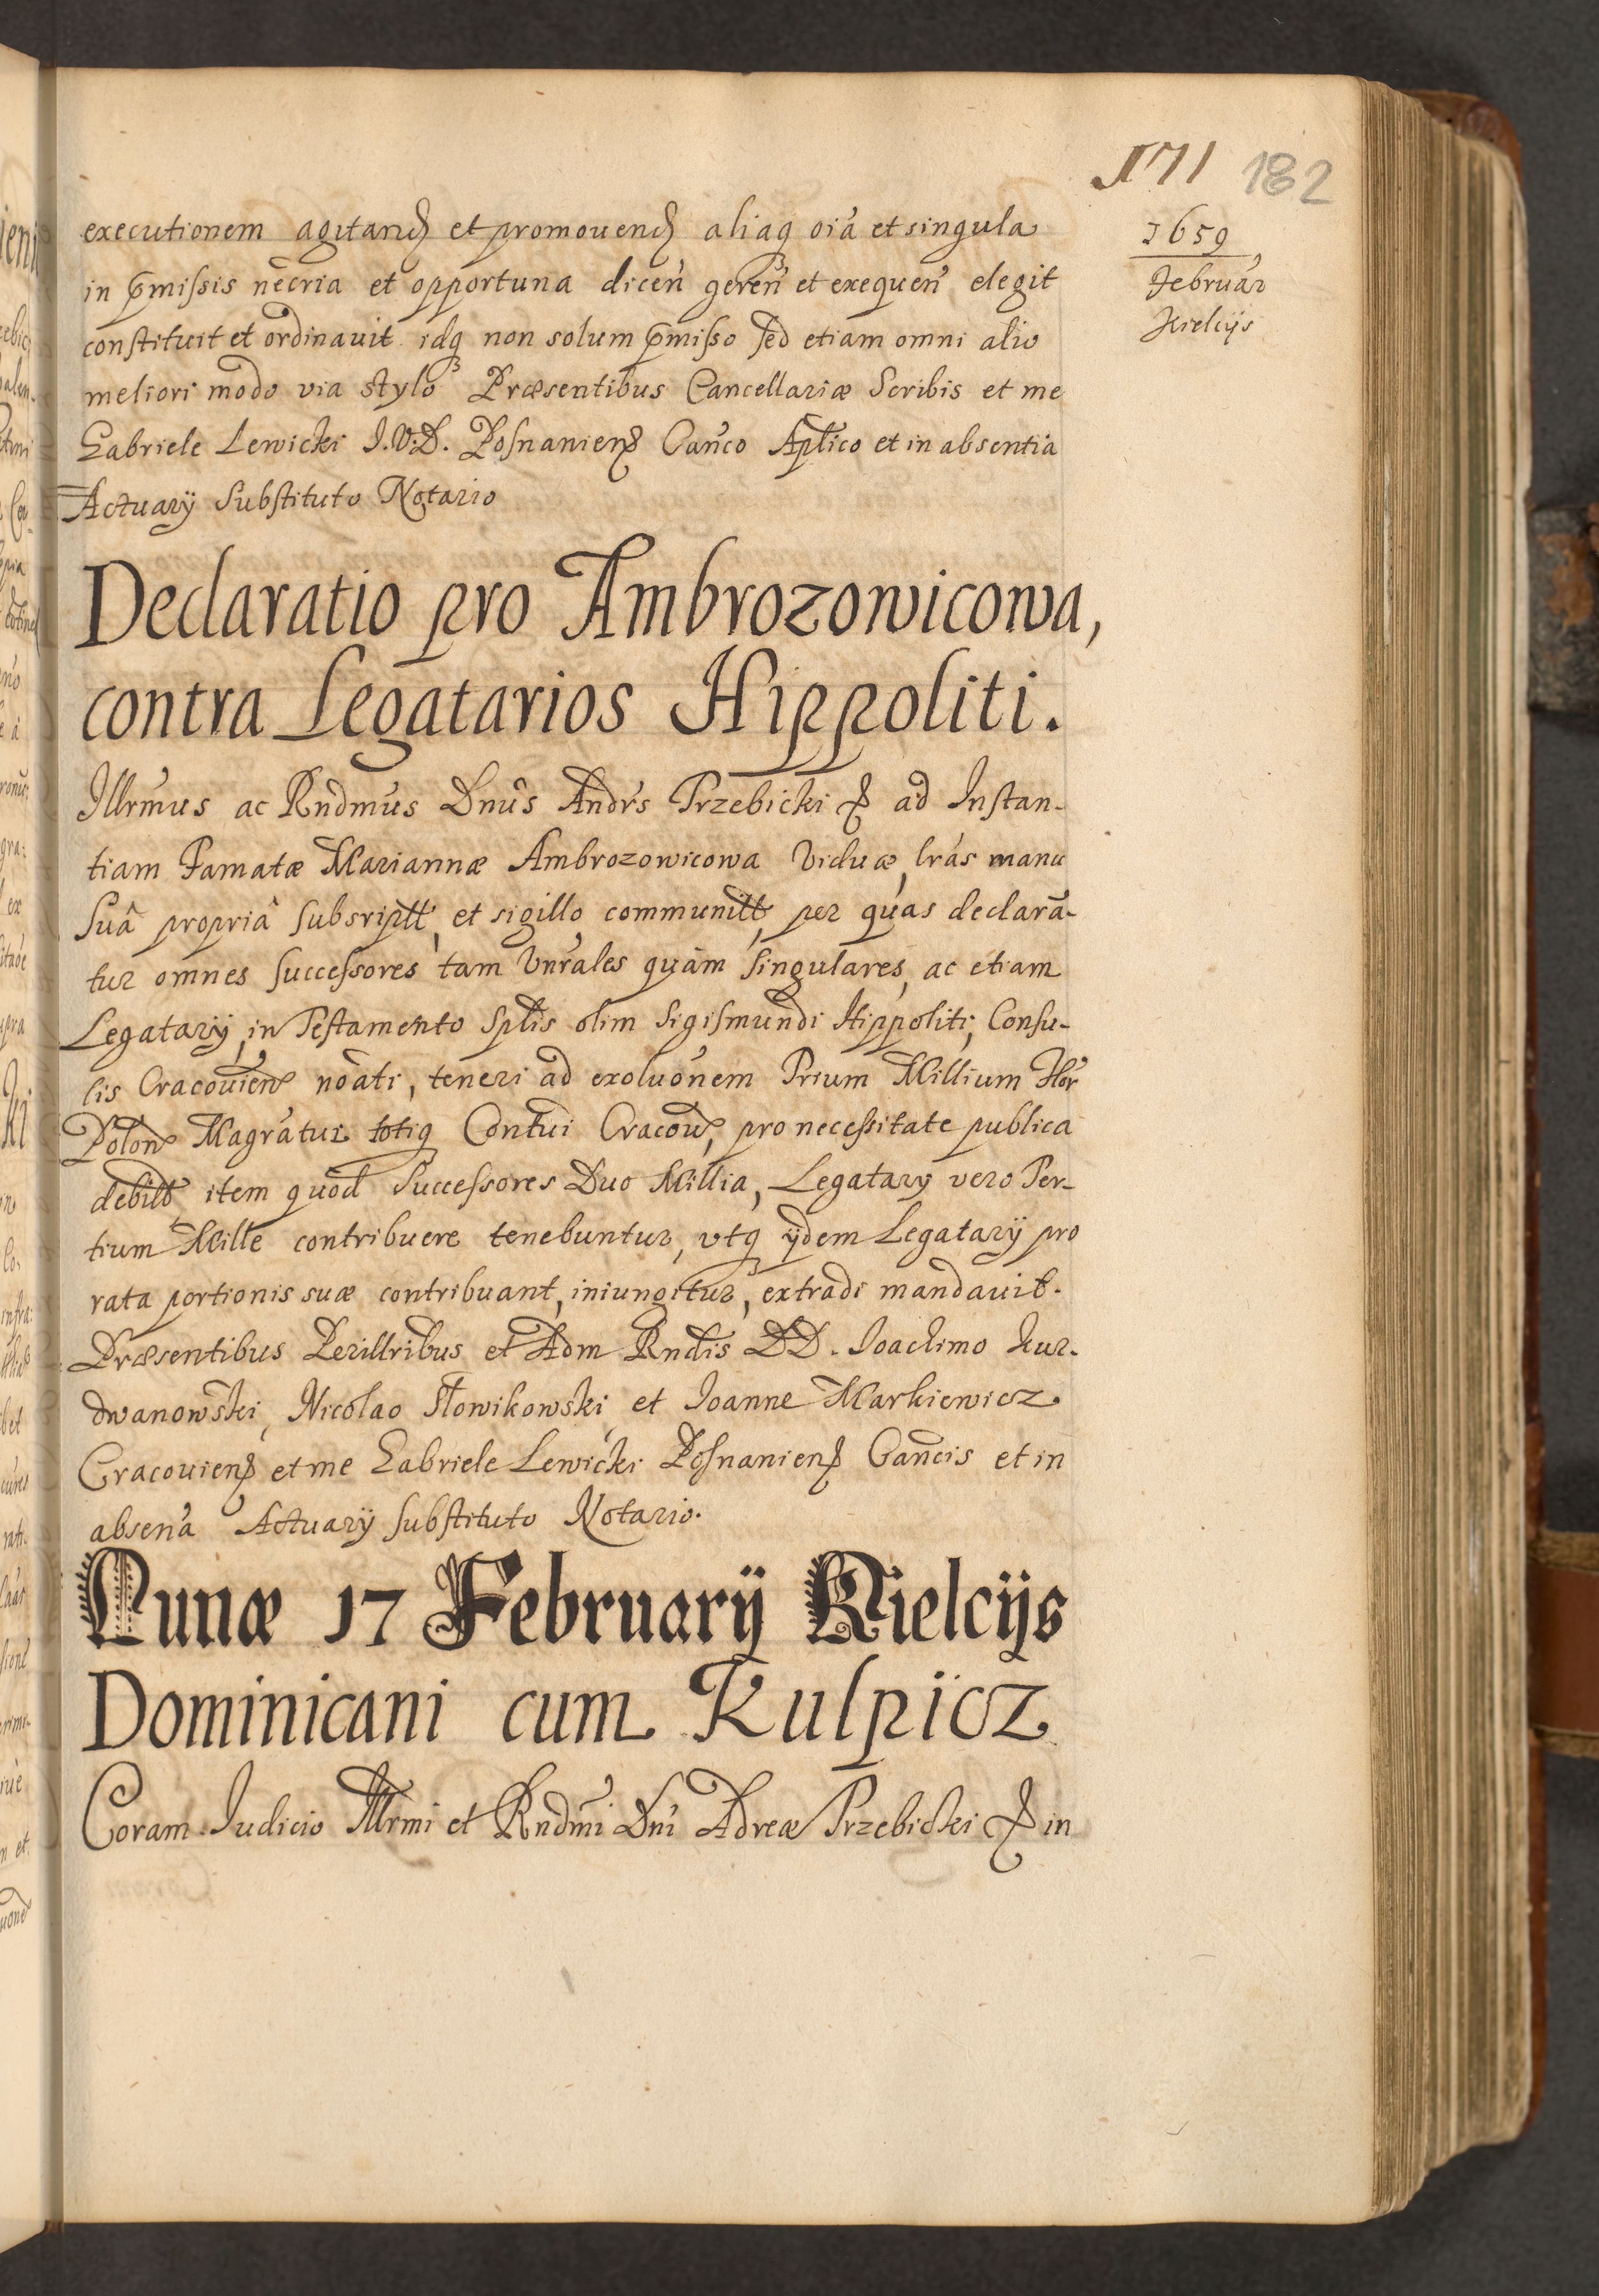 171 182
1659
Februar
Kielcijs
executionem agitand et promouend aliaq oia et singula
in pmissis necria et opportuna dicen geren et exequen elegit
constituit et ordinauit idq non solum pmisso sed etiam omni alio
meliori modo via stylo Præsentibus Cancellariæ Scribis et me
Gabriele Lewicki J.V.D. Posnaniens Canco Aplico et in absentia
Actuarij Substituto Notario
Declaratio pro Ambrozowicowa,
contra Legatarios Hippoliti.
Illrmus ac Rndmus Dnus Andrs Trzebicki & ad Instan-
tiam Famatæ Mariannæ Ambrozowicowa Viduæ, lras manu
Suâ propriâ subsriptt, et sigillo communitt, per quas declara-
tur omnes successores tam Vnrales quàm singulares, ac etiam
Legatarij, in Testamento Splis olim Sigismundi Hippoliti, Consu-
lis Cracouien noati, teneri ad exoluonem Trium Millium Flor
Polon Magratui totiq Contui Cracou, pro necessitate publica
debitt, item quod Successores Duo Millia, Legatary vero Ter-
tium Mille contribuere tenebuntur, vtq ijdem Legatarij pro
rata portionis suæ contribuant, iniungitur, extradi mandauit.
Præsentibus Perilltribus et Adm Rndis DD. Ioachimo Kur-
dwanowski, Nicolao Słowikowski, et Ioanne Markiewicz
Cracouiens et me Gabriele Lewicki Posnaniens Cancis et in
absena Actuarij substituto Notario.
Lunæ 17 Februarij Kielcijs
Dominicani cum Kulpicz
Coram Iudicio Illrmi et Rndmi Dni Adreæ Trzebicki & in